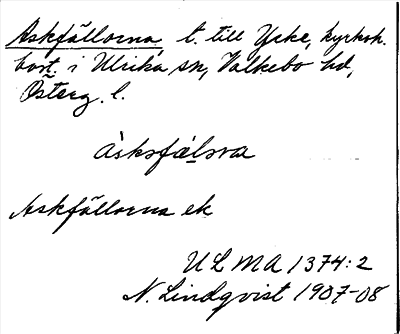 Askfällorna t. till Ycke, kyrkoh.
bost. i Ulrika sn, Valkebo hd,
Österg. l.
àsksfælsra
Askfällorna ek
ULMA 1374:2
N. Lindqvist 1907-08